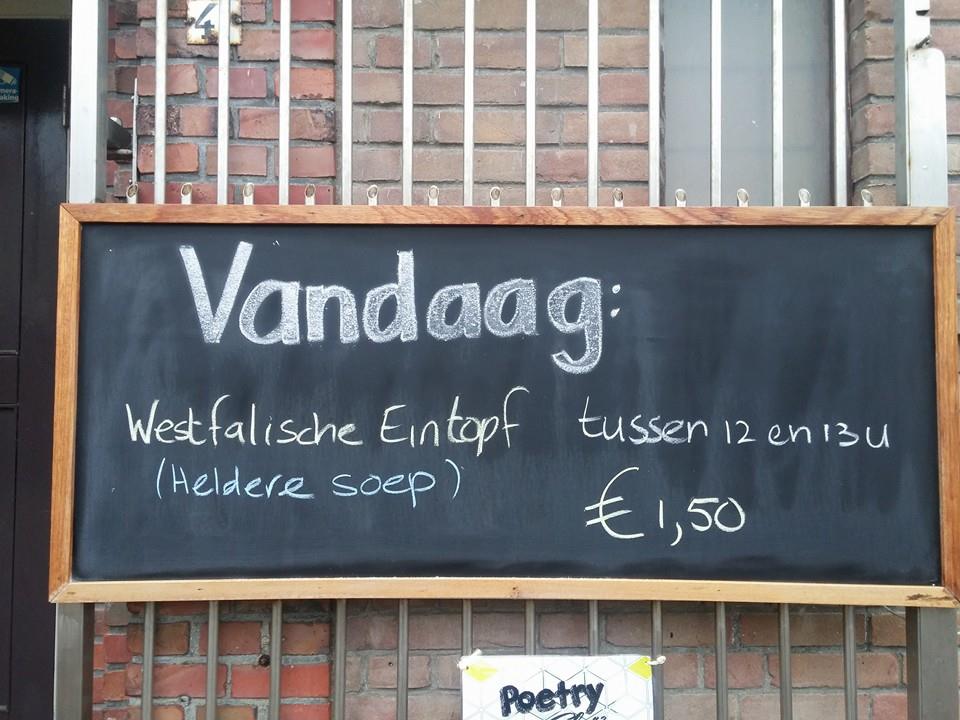 4
mera-
aking
Vandaag:
Westfalische Eintopf tussen 12 en 13u
(Heldere soep)
€ 1,50
Poetry